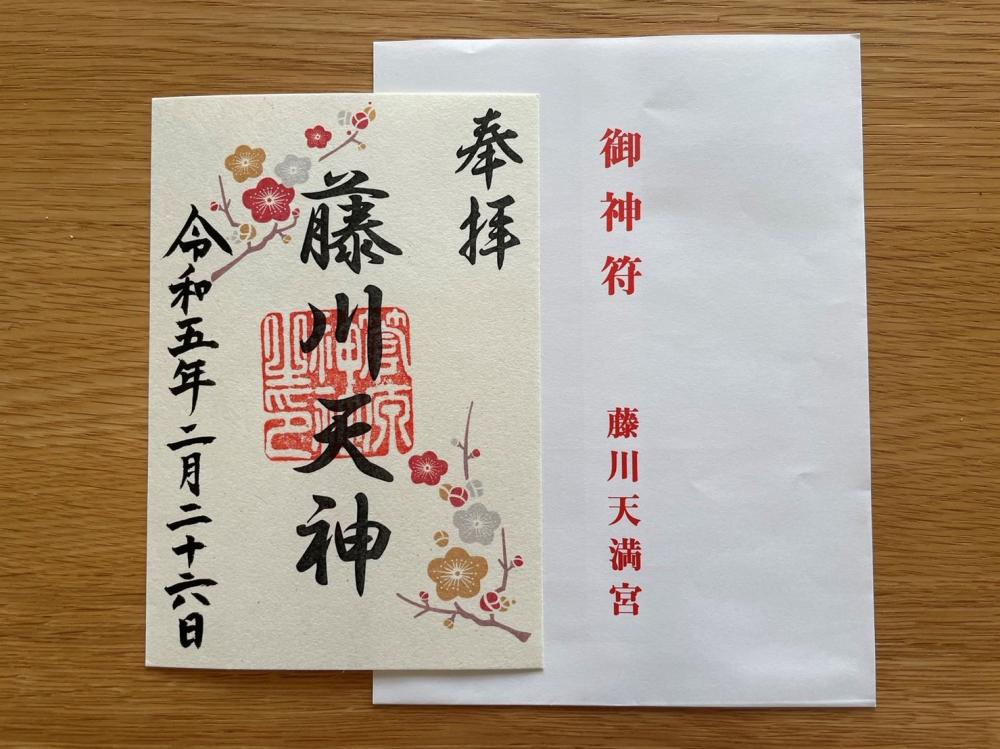 奉拝
藤川天神
令和五年二月二十六日
御神符
藤川天満宮